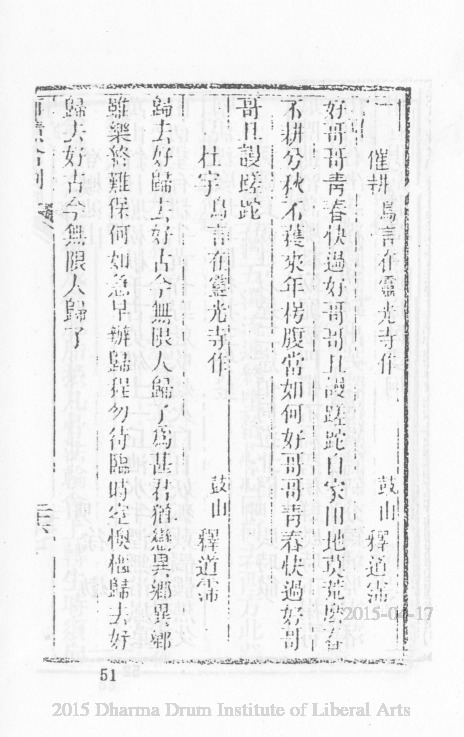 催耕鳥言在靈光寺作　鼓山　釋道霈
好哥哥青春快過好哥哥且謾蹉跎自家田地莫荒蕪春
不耕兮秋不穫來年枵腹當如何好哥哥青春快過好哥
哥且謾蹉跎
杜宇鳥言在靈光寺作　鼓山　釋道霈
歸去好歸去好古今無限人歸了爲甚君猶戀異鄉異鄉
雖樂終難保何如急早辦歸程勿待臨時空懊惱歸去好
歸去好古今無限人歸了
51
2015-04-17
2015 Dharma Drum Institute of Liberal Arts